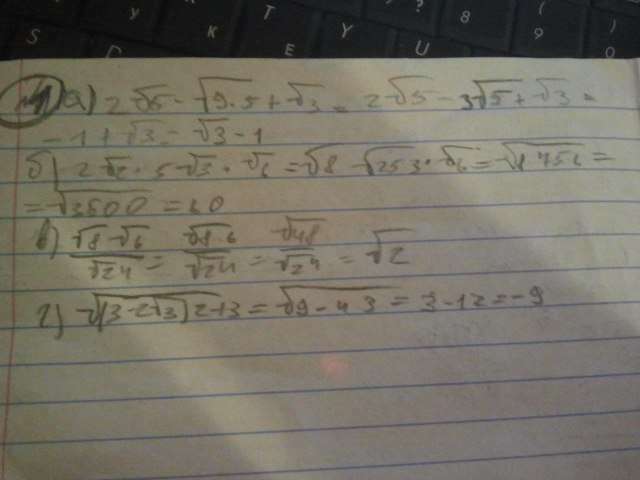 S D K T E Y Y U ? 8 ( 9 ) 0
№1 а) 2√5 - √9·5 + √3 = 2√5 - 3√5 + √3 =
- 1 + √3 = √3 - 1
б) 2√2 · 5√3 · √6 = √8 · √25 3 · √6 = √8 75 6 =
= √3600 = 60
в) √8·√6/√24 = √8·6/√24 = √48/√24 = √2
г) √(3-2√3)2+3 = √9-4 3 = 3-12 = -9